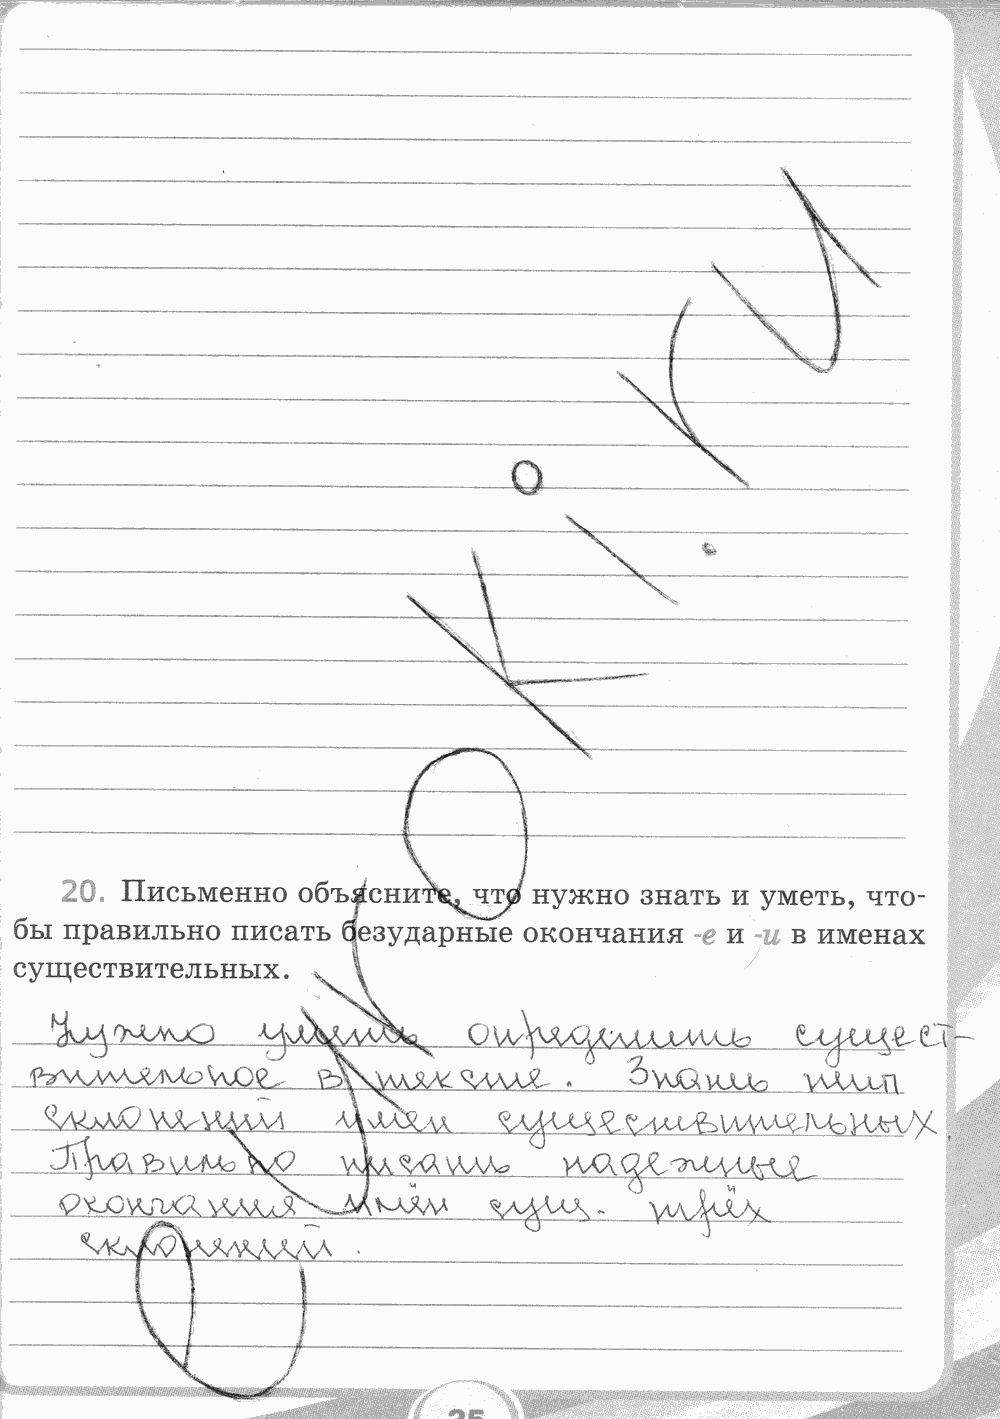 20. Письменно объясните, что нужно знать и уметь, что-
бы правильно писать безударные окончания -е и -и в именах
существительных.
Нужно уметь определить сущест-
вительное в тексте. Знань тип
склонений имен существительных.
Правильно писань падежные
окончания имён сущ. трёх
склонений.
25